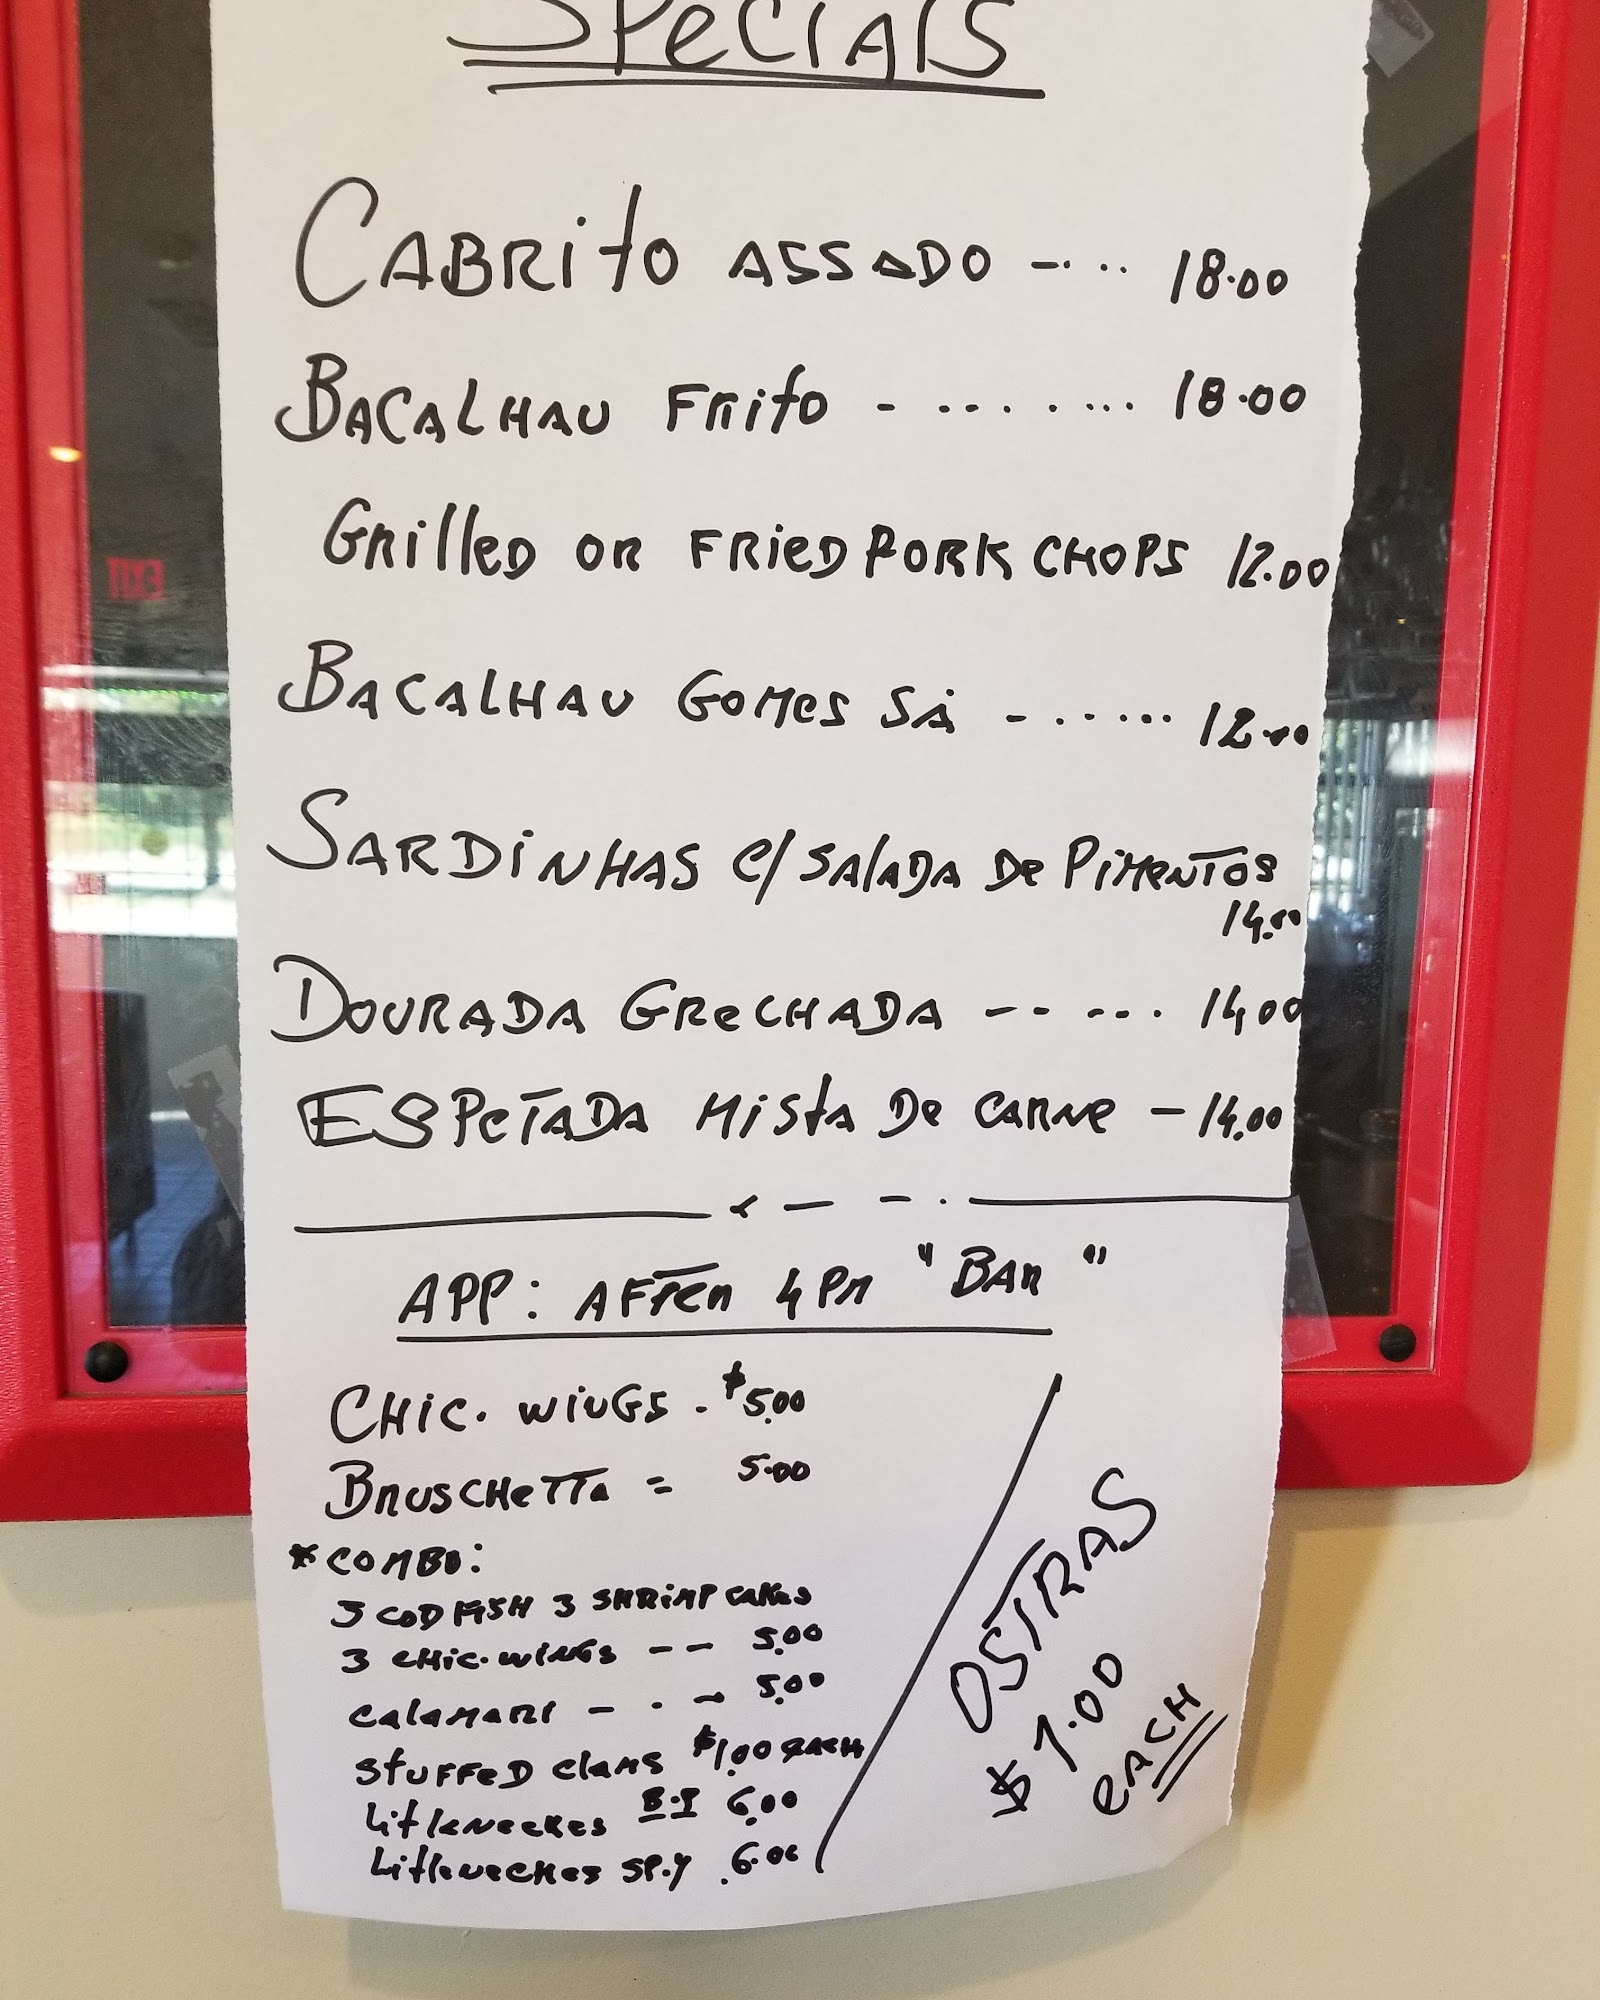 SPECIALS
CABRITO ASSADO -... 18.00
BACALHAU FRITO - ........ 18.00
GRILLED OR FRIED PORK CHOPS 12.00
BACALHAU GOMES SÁ - ...... 12.00
SARDINHAS C/ SALADA DE PIMENTOS
14.00
DOURADA GRECHADA -- --... 14,00
ESPETADA MISTA DE CARNE - 14.00
APP: AFTER 4 PM "BAR"
CHIC. WINGS - $5.00
BRUSCHETTA = 5.00
* COMBO:
3 CODFISH 3 SHRIMP CAKES
3 CHIC. WINGS -- 5.00
CALAMARI - . - 5.00
STUFFED CLAMS $1.00 EACH
LITLENECKES B.P 6.00
LITLENECKES SP.Y 6.00
OSTRAS
$1.00
EACH
EXIT